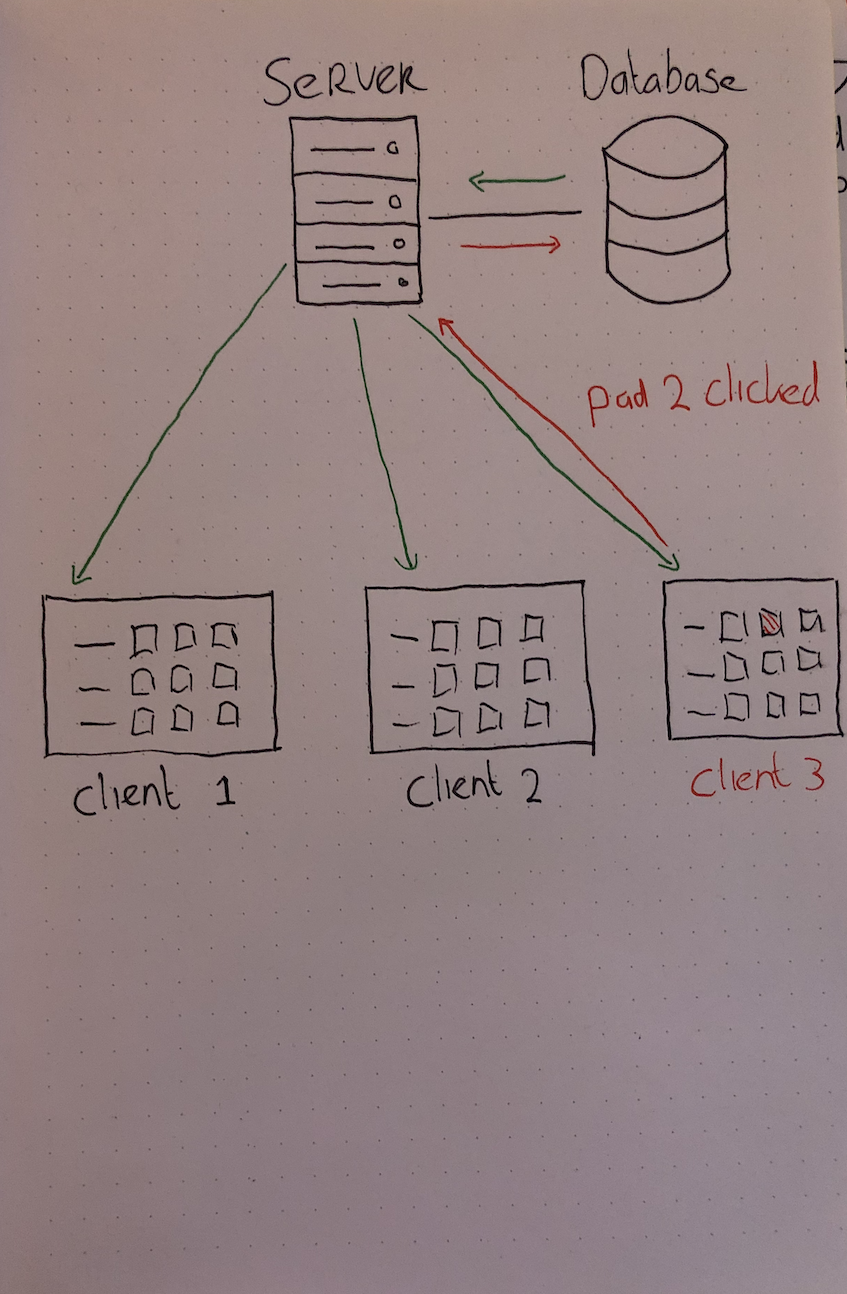 SERVER
Database
pad 2 clicked
Client 1
Client 2
Client 3